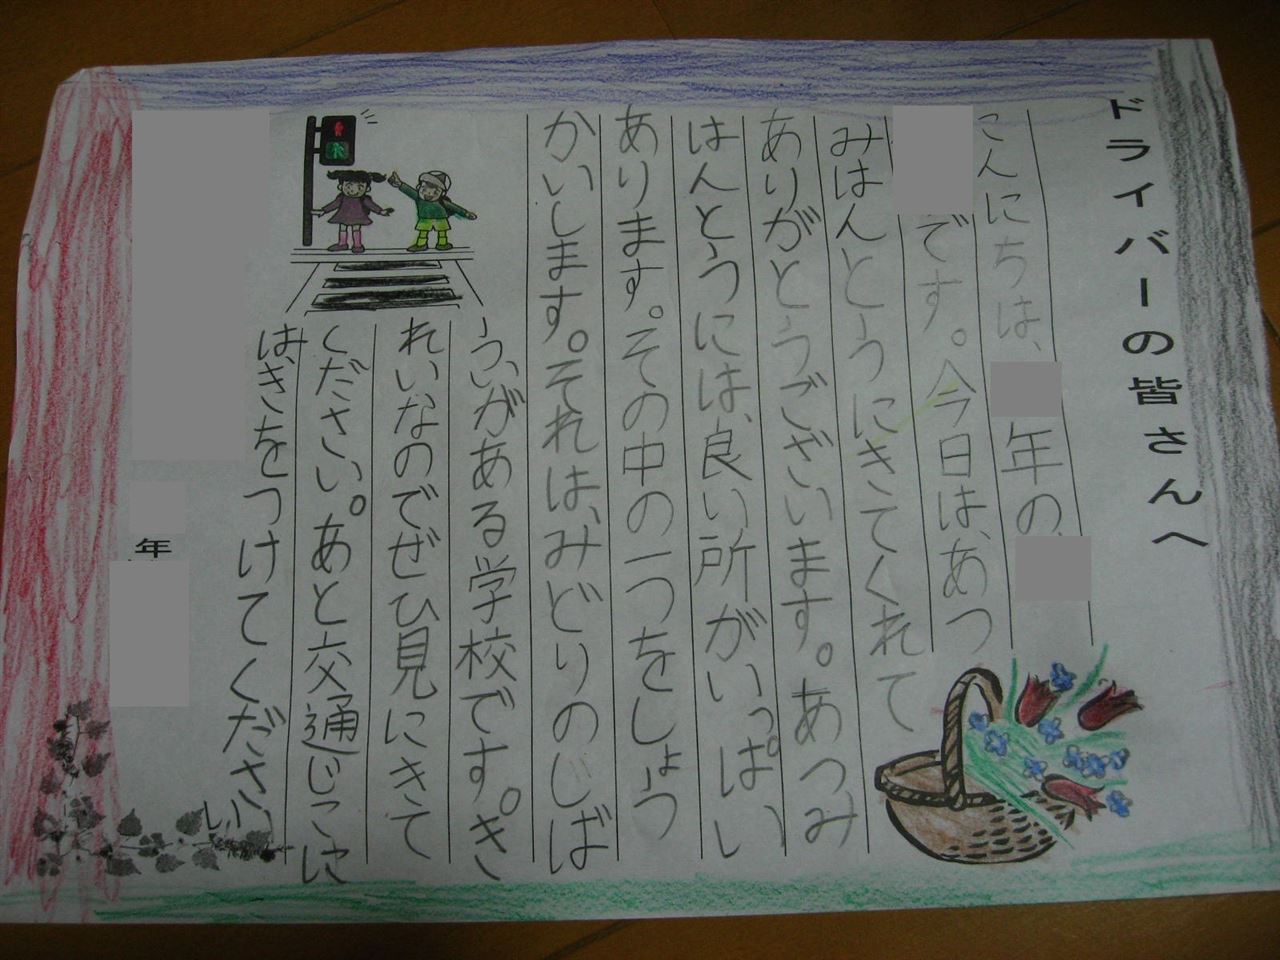 ドライバーの皆さんへ
こんにちは、年の、
です。今日は、あつ
みはんとうにきてくれて
ありがとうございます。あつみ
はんとうには、良い所がいっぱい
あります。その中の一つをしょう
かいします。それは、みどりのじば
う、がある学校です。き
れいなのでぜひ見にきて
ください。あと交通じこに
は、きをつけてください。
年